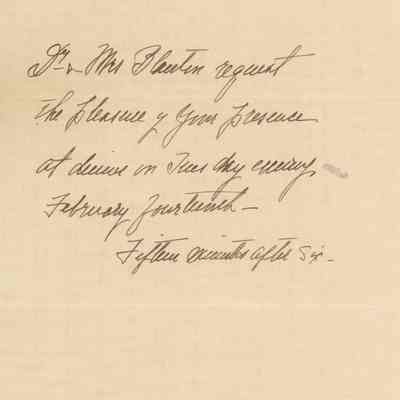 Dr & Mrs Blanton request
the pleasure of your presence
at dinner on Tuesday evening
February fourteenth –
Fifteen minutes after six –